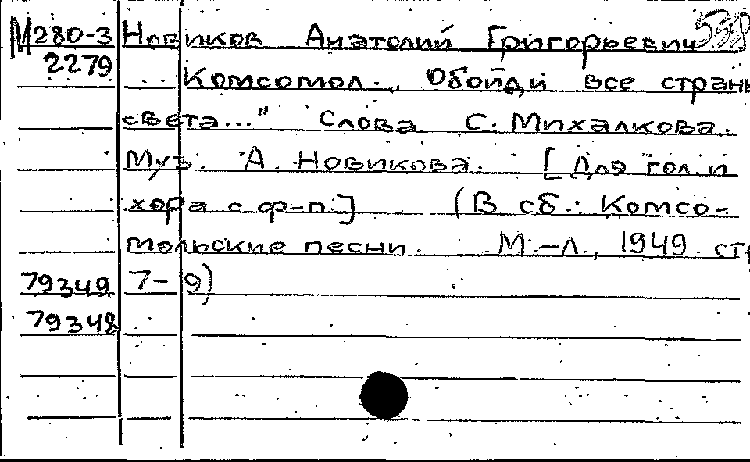 М280-3 Новиков Анатолий Григорьевич
2279 Комсомол. „Обойди все страны
света..." Слова С. Михалкова.
Муз. А. Новикова. [Для гол. и
хора с ф-п.] (В сб.: Комсо-
мольские песни. М.-Л., 1949 стр
79349 7-9)
79348